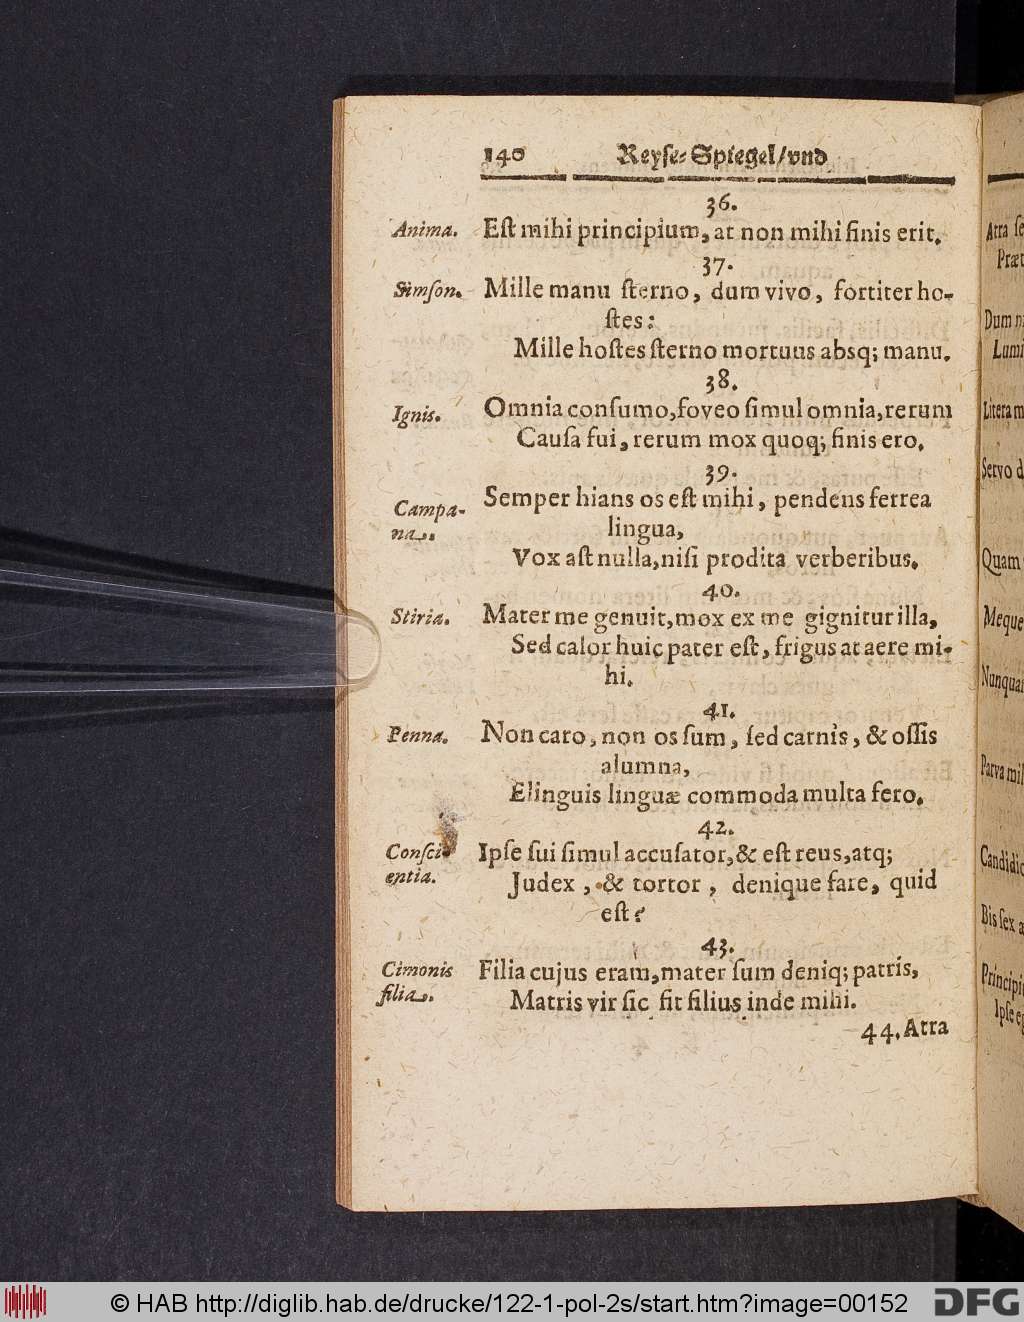 140 Reyse-Spiegel/vnd
36.
Anima. Est mihi principium, at non mihi finis erit.
37.
Simson. Mille manu sterno, dum vivo, fortiter ho-
stes:
Mille hostes sterno mortuus absq; manu.
38.
Ignis. Omnia consumo, foveo simul omnia, rerum
Causa fui, rerum mox quoq; finis ero.
39.
Campa- Semper hians os est mihi, pendens ferrea
na. lingua,
Vox ast nulla, nisi prodita verberibus.
40.
Stiria. Mater me genuit, mox ex me gignitur illa,
Sed calor huic pater est, frigus at aere mi-
hi.
41.
Penna. Non caro, non os sum, sed carnis, & ossis
alumna,
Elinguis linguæ commoda multa fero.
42.
Consci- Ipse sui simul accusator, & est reus, atq;
entia. Judex, & tortor, denique fare, quid
est?
43.
Cimonis Filia cujus eram, mater sum deniq; patris,
filia. Matris vir sic fit filius inde mihi.
44. Atra
Atra
Præt
Dum
Lumi
Litera m
Servo d
Quam
Meque
Nunquam
Parva mil
Candidi
Bis sex
Principi
Ipse
© HAB http://diglib.hab.de/drucke/122-1-pol-2s/start.htm?image=00152 DFG